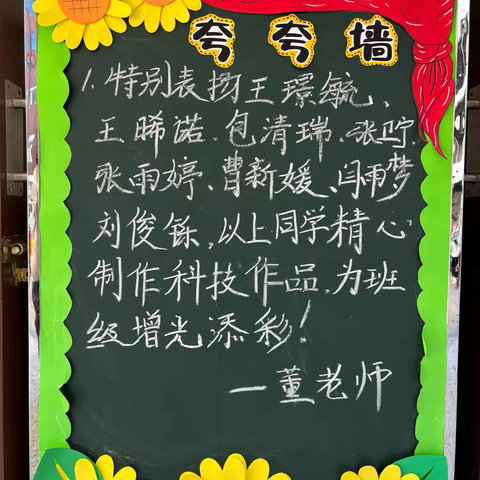 夸夸墙
1.特别表扬王璟毓、
王晞诺、包清瑞、张咛、
张雨婷、曹新媛、闫雨梦
刘俊铄,以上同学精心
制作科技作品,为班
级增光添彩!
—董老师